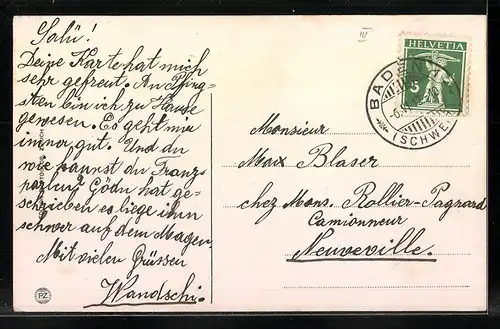 Salü!
Deine Karte hat mich
sehr gefreut. An Pfing-
sten bin ich zu Hause
gewesen. Es geht mir
immer gut. Und du
wie kannst du Franz.
parlieu? Gödu hat ge-
schrieben es liege ihm
schwer auf dem Magen.
Mit vielen Grüssen
Wandschi.
PZ
III
HELVETIA
5
BADEN
(SCHWE
Monsieur
Max Blaser
chez Mons. Rollier-Pagnard
Camionneur
Neuveville.